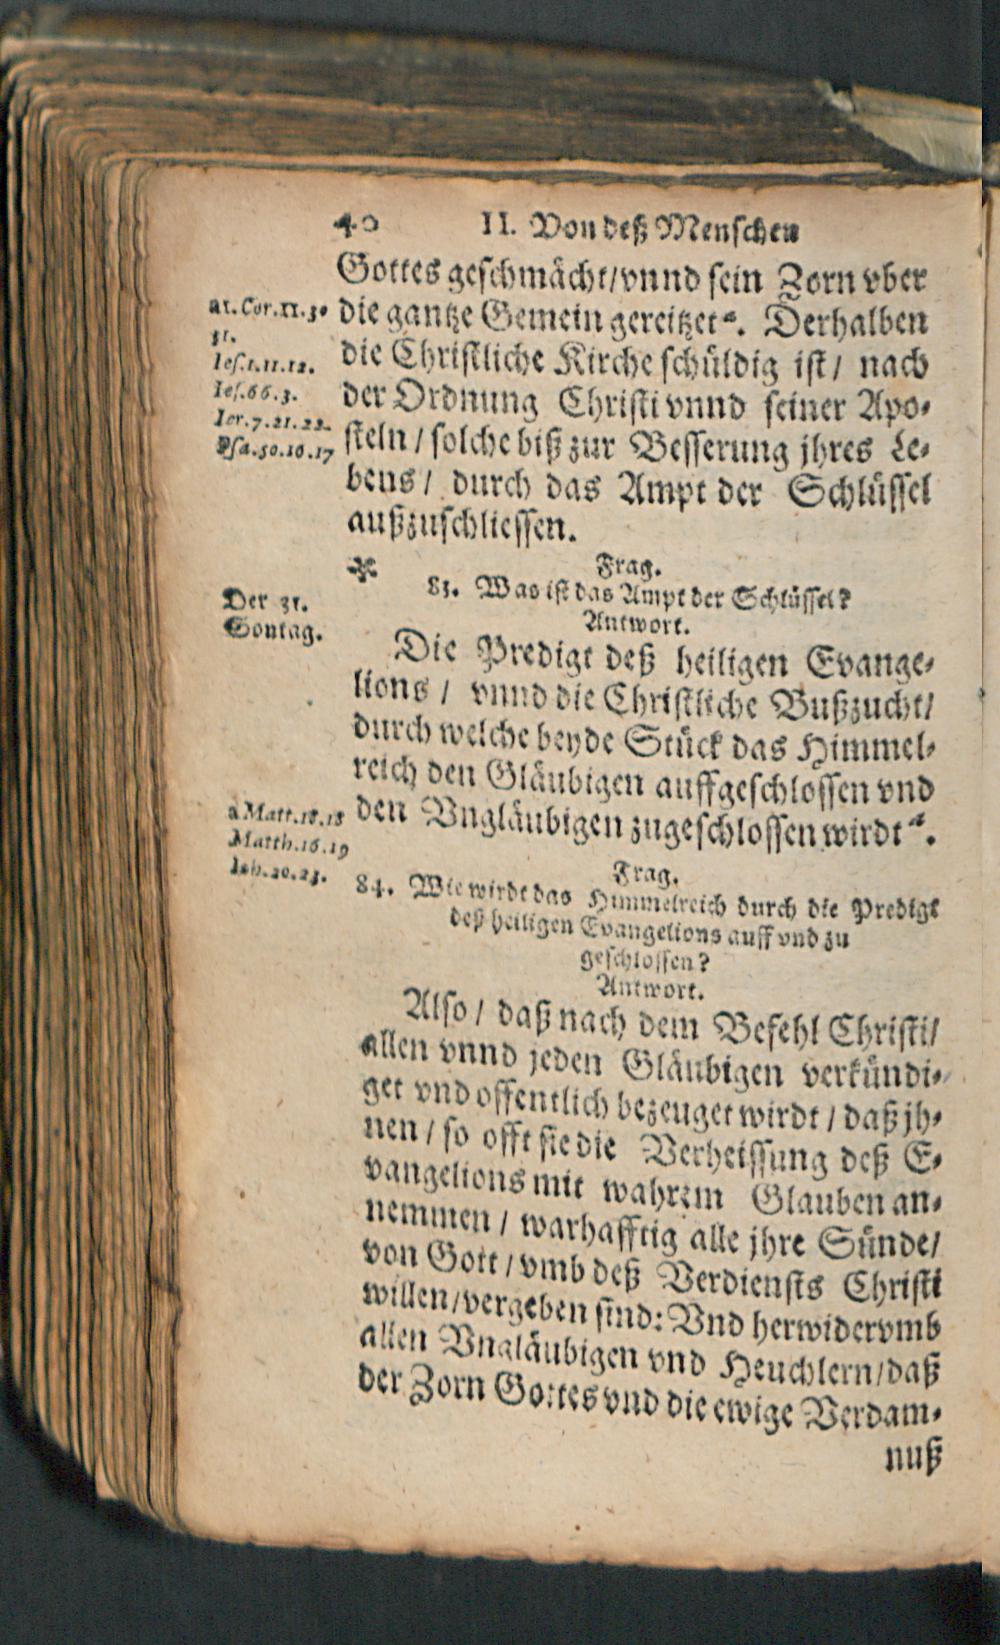 40 II. Von deß Menschen
Gottes geschmächt/vnnd sein Zorn vber
die gantze Gemein gereitzet a. Derhalben
die Christliche Kirche schüldig ist/ nach
der Ordnung Christi vnnd seiner Apo-
steln/ solche biß zur Besserung jhres Le-
bens/ durch das Ampt der Schlüssel
außzuschliessen.
a1.Cor.11.30
31.
Ies.1.11.12.
Ies.66.3.
Ier.7.21.22.
Psa.50.16.17
Frag.
83. Was ist das Ampt der Schlüssel?
Antwort.
Der 31.
Sontag.
Die Predigt deß heiligen Evange-
lions/ vnnd die Christliche Bußzucht/
durch welche beyde Stück das Himmel-
reich den Gläubigen auffgeschlossen vnd
den Vngläubigen zugeschlossen wirdt a.
a Matt.18.18
Matth.16.19
Ioh.20.23.
Frag.
84. Wie wirdt das Himmelreich durch die Predigt
deß heiligen Evangelions auff vnd zu
geschlossen?
Antwort.
Also/ daß nach dem Befehl Christi/
allen vnnd jeden Gläubigen verkündi-
get vnd offentlich bezeuget wirdt/ daß jh-
nen/ so offt sie die Verheissung deß E-
vangelions mit wahrem Glauben an-
nemmen/ warhafftig alle jhre Sünde/
von Gott/ vmb deß Verdiensts Christi
willen/vergeben sind: Vnd herwidervmb
allen Vngläubigen vnd Heuchlern/daß
der Zorn Gottes vnd die ewige Verdam-
nuß